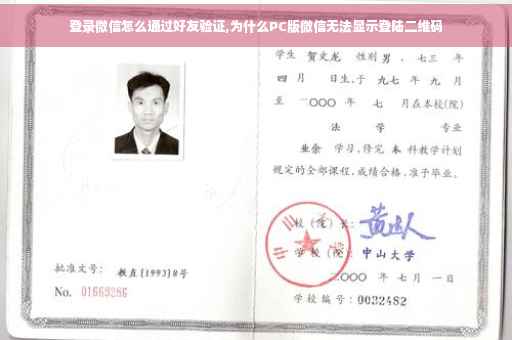 登录微信怎么通过好友验证,为什么PC版微信无法显示登陆二维码
学生 贺文龙 性别 男、七三 年
四 月 日生,于 九七 年 九 月
至 二000 年 七 月在本校(院)
法 学 专业
业余 学习,修完 本 科教学计划
规定的全部课程,成绩合格,准予毕业。
校(院)长:
学校(院): 中山大学
二000 年 七 月 一 日
批准文号: 教直[1993]8号
No. 01669286
学校编号: 0032482